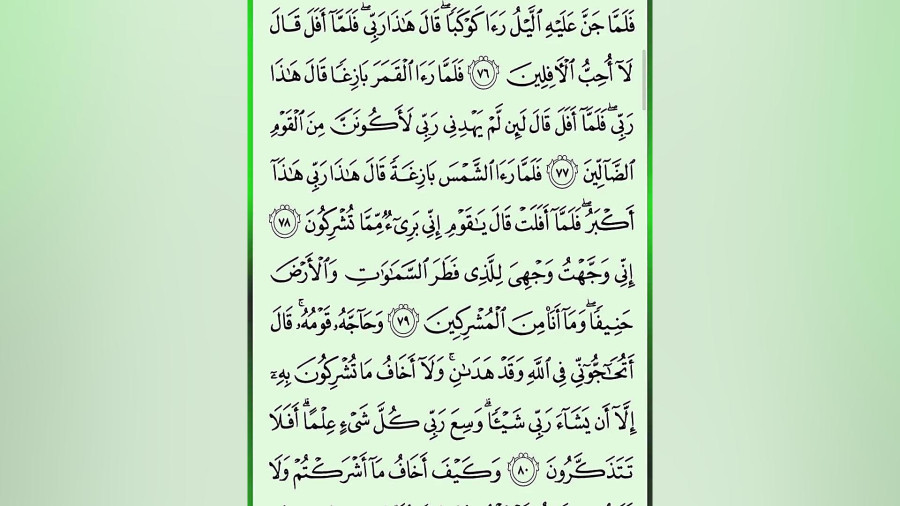 فَلَمَّا جَنَّ عَلَيْهِ ٱلَّيْلُ رَءَا كَوْكَبًۭا ۖ قَالَ هَـٰذَا رَبِّى ۖ فَلَمَّآ أَفَلَ قَالَ
لَآ أُحِبُّ ٱلْـَٔافِلِينَ ٧٦ فَلَمَّا رَءَا ٱلْقَمَرَ بَازِغًۭا قَالَ هَـٰذَا
رَبِّى ۖ فَلَمَّآ أَفَلَ قَالَ لَئِن لَّمْ يَهْدِنِى رَبِّى لَأَكُونَنَّ مِنَ ٱلْقَوْمِ
ٱلضَّآلِّينَ ٧٧ فَلَمَّا رَءَا ٱلشَّمْسَ بَازِغَةًۭ قَالَ هَـٰذَا رَبِّى هَـٰذَآ
أَكْبَرُ ۖ فَلَمَّآ أَفَلَتْ قَالَ يَـٰقَوْمِ إِنِّى بَرِىٓءٌۭ مِّمَّا تُشْرِكُونَ ٧٨
إِنِّى وَجَّهْتُ وَجْهِىَ لِلَّذِى فَطَرَ ٱلسَّمَـٰوَٰتِ وَٱلْأَرْضَ
حَنِيفًۭا ۖ وَمَآ أَنَا۠ مِنَ ٱلْمُشْرِكِينَ ٧٩ وَحَآجَّهُۥ قَوْمُهُۥ ۚ قَالَ
أَتُحَـٰٓجُّوٓنِّى فِى ٱللَّهِ وَقَدْ هَدَىٰنِ ۚ وَلَآ أَخَافُ مَا تُشْرِكُونَ بِهِۦٓ
إِلَّآ أَن يَشَآءَ رَبِّى شَيْـًۭٔا ۗ وَسِعَ رَبِّى كُلَّ شَىْءٍ عِلْمًا ۗ أَفَلَا
تَتَذَكَّرُونَ ٨٠ وَكَيْفَ أَخَافُ مَآ أَشْرَكْتُمْ وَلَا